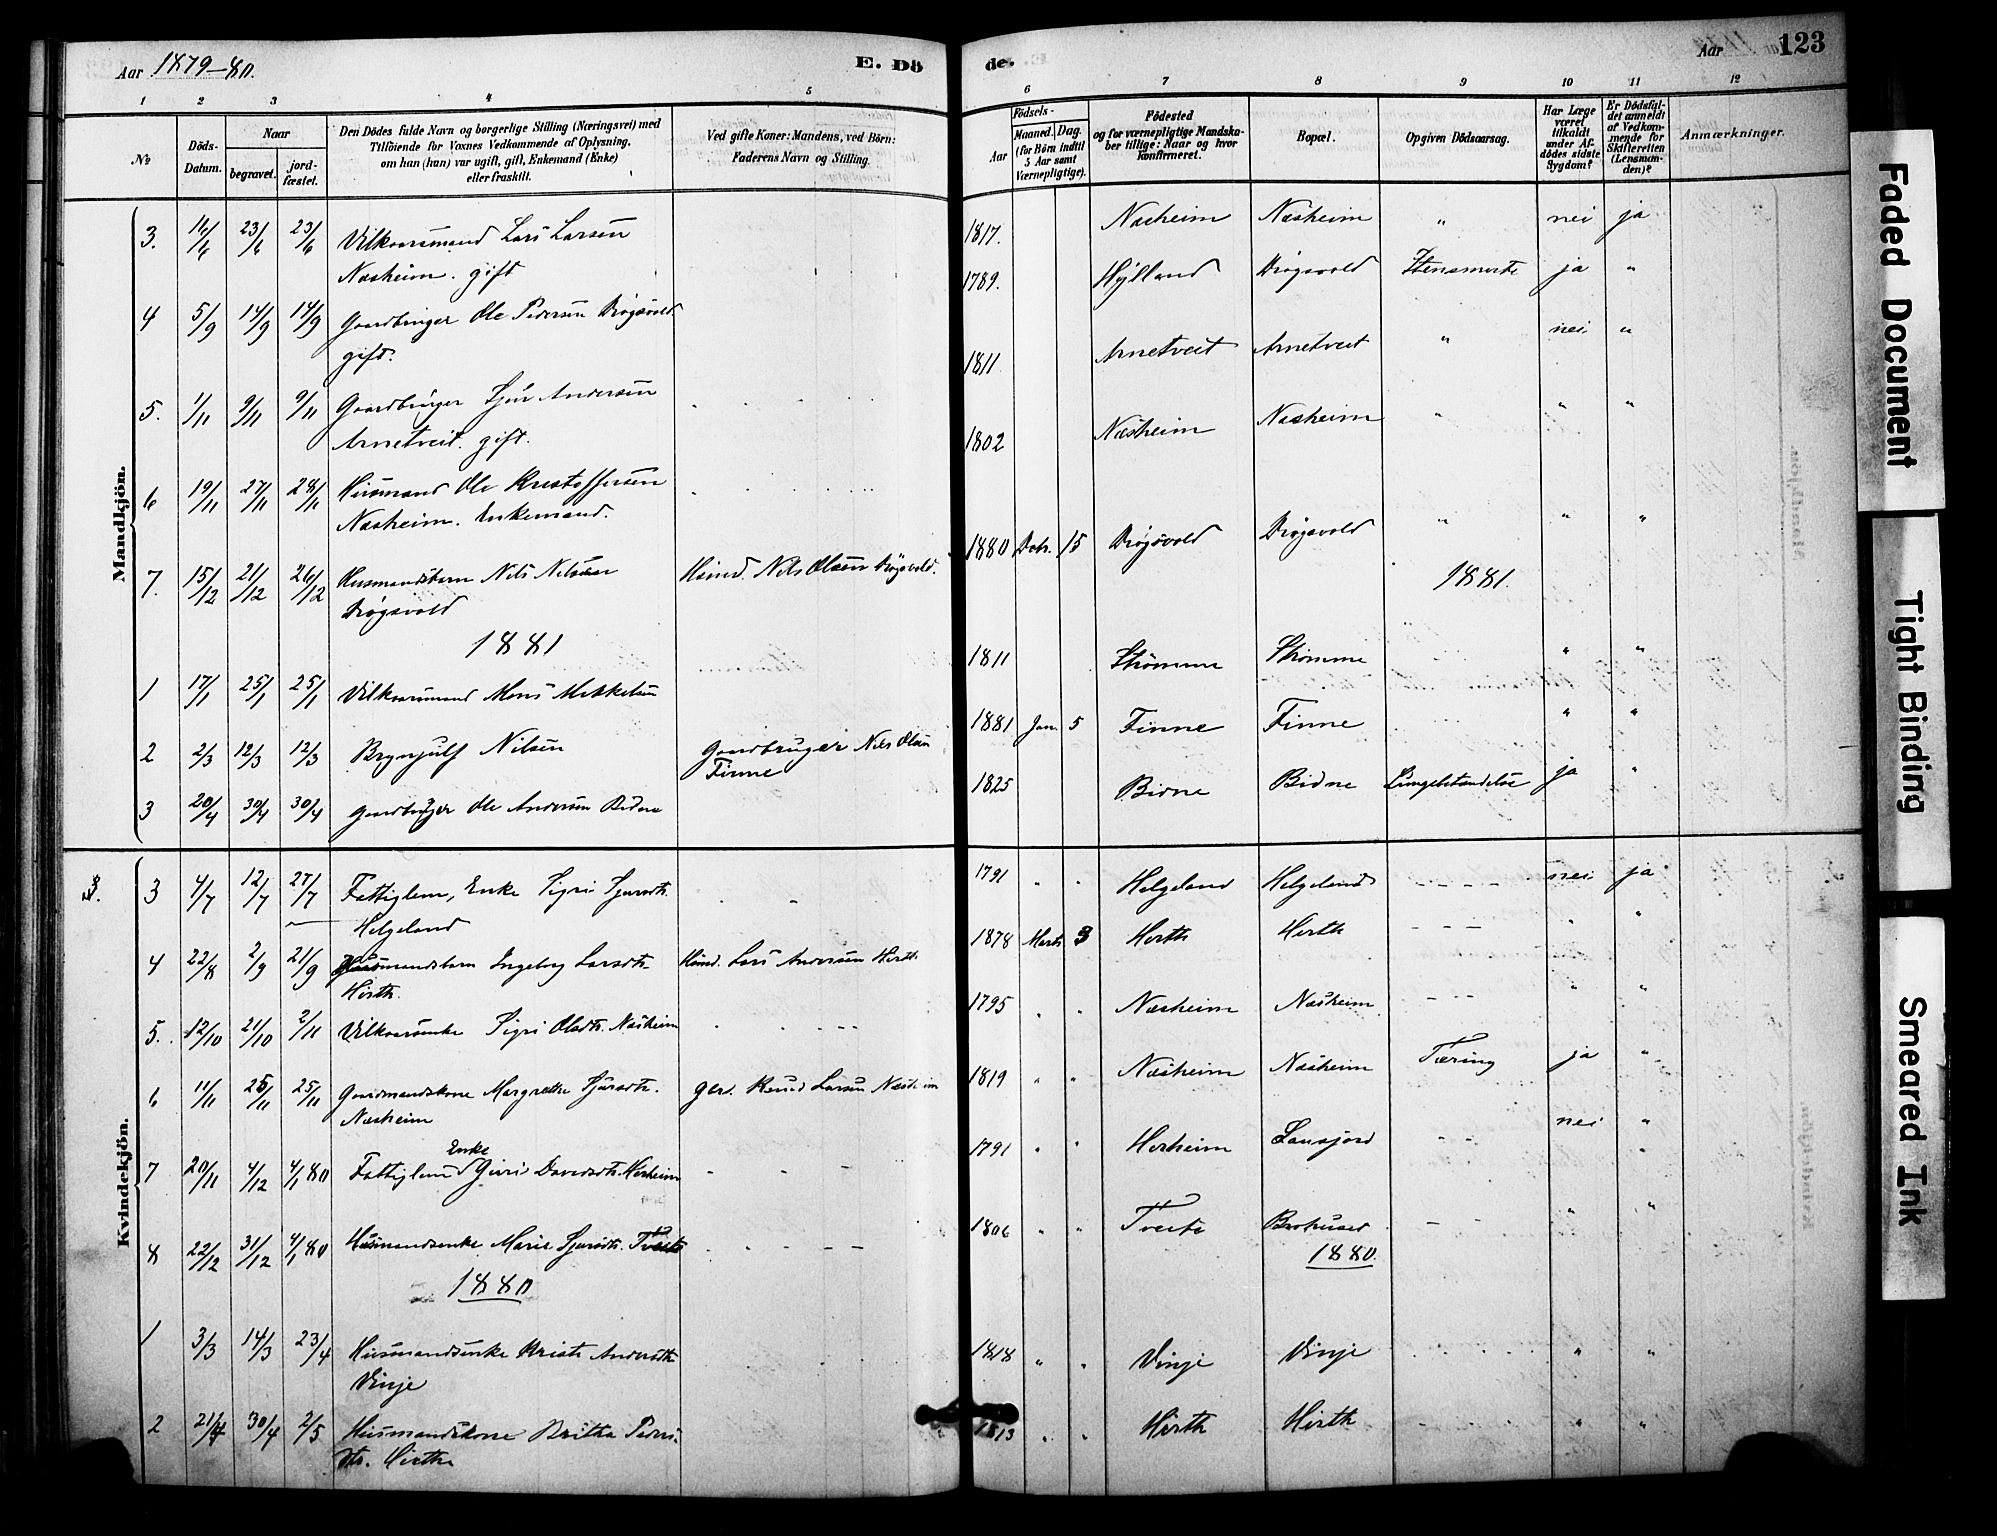 Aar 1879-80.
E. Dö
de.
Aar
123
1 2 3 4 5 6 7 8 9 10 11 12
No
Döds-Datum.
Naar
begravet.
jord-fæstet.
Den Dödes fulde Navn og borgerlige Stilling (Næringsvei) med
Tilföiende for Voxnes Vedkommende af Oplysning,
om han (hun) var ugift, gift, Enkemand (Enke)
eller fraskilt.
Ved gifte Koner: Mandens, ved Börn:
Faderens Navn og Stilling.
Födsels-
Aar
Maaned. Dag.
(for Börn indtil
5 Aar samt
Værnepligtige).
Födested
og for værnepligtige Mandska-
ber tillige: Naar og hvor
konfirmeret.
Bopæl.
Opgiven Dödsaarsag.
Har Læge
været
tilkaldt
under Af-
dödes sidste
Sygdom?
Er Dödsfal-
det anmeldt
af Vedkom-
mende for
Skifteretten
(Lensman-
den)?
Anmærkninger.
Mandkjön.
3. 16/6 23/6 23/6 Vilkaarsmand Lars Larsen 1817. Næsheim Næsheim " nei ja
Næsheim. gift
4 5/9 14/9 14/9 Gaardbruger Ole Pedersen Drøgsvold 1789. Hylland Drøgsvold Stensmerte ja "
gift.
5. 1/11 9/11 9/11 Gaardbruger Sjur Andersen 1811 Arnetveit Arnetveit " nei "
Arnetveit. gift.
6 19/11 27/11 28/11 Husmand Ole Kristoffersen 1802 Næsheim Næsheim " " "
Næsheim. Enkemand.
7. 15/12 21/12 26/12 Husmandsbarn Nils Nilsen Husmd. Nils Olsen Drøgsvold. 1880 Debr. 15 Drøgsvold Drøgsvold " " "
Drøgsvold
1881 1881.
1 17/1 25/1 25/1 Vilkaarsmand Mons Mikkelsen 1811 Strømme Strømme " "
2 2/3 12/3 12/3 Brynjulf Nilsen Gaardbruger Nils Olsen 1881 Jan. 5 Finne Finne " "
Finne
3 20/4 30/4 30/4 Gaardbruger Ole Andersen Bidne 1825 Bidne Bidne Lungebetændelse ja "
Kvindekjön.
3. 3 4/7 12/7 27/7 Fattiglem, Enke Sigri Sjursdtr. 1791 " " Helgeland Helgeland nei ja
Helgeland
4 22/8 2/9 21/9 Husmandsbarn Ingeborg Larsdtr. Husmd. Lars Andersen Hirth 1878 Marts 3 Herth Herth " "
Hirth.
5. 12/10 21/10 2/11 Vilkaarsenke Sigri Olsdtr. Næsheim 1795 " " Næsheim Næsheim " "
6 11/11 25/11 25/11 Gaardmandskone Margrethe Sjursdtr. Gbr. Knud Larsen Næsheim 1819 " " Næsheim Næsheim Tæring ja "
Næsheim
Enke
7 20/11 4/12 4/1 80 Fattiglem Guri Davidsdtr. Herheim 1791 " " Herheim nei "
8 22/12 31/12 4/1 80 Husmandsenke Marie Sjursdtr. Tveite 1806 " " Tveite Brohuset " "
1880 1880.
1 3/3 14/3 23/4 Husmandsenke Kristi Andersdtr. 1818 " " Vinje Vinje " "
Vinje
2 21/4 30/4 2/5 Husmandskone Britha Peders- 1813 " " Hirth Hirth " "
dtr. Hirth
Faded Document
Tight Binding
Smeared Ink